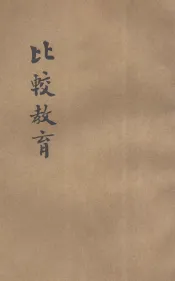 比較教育